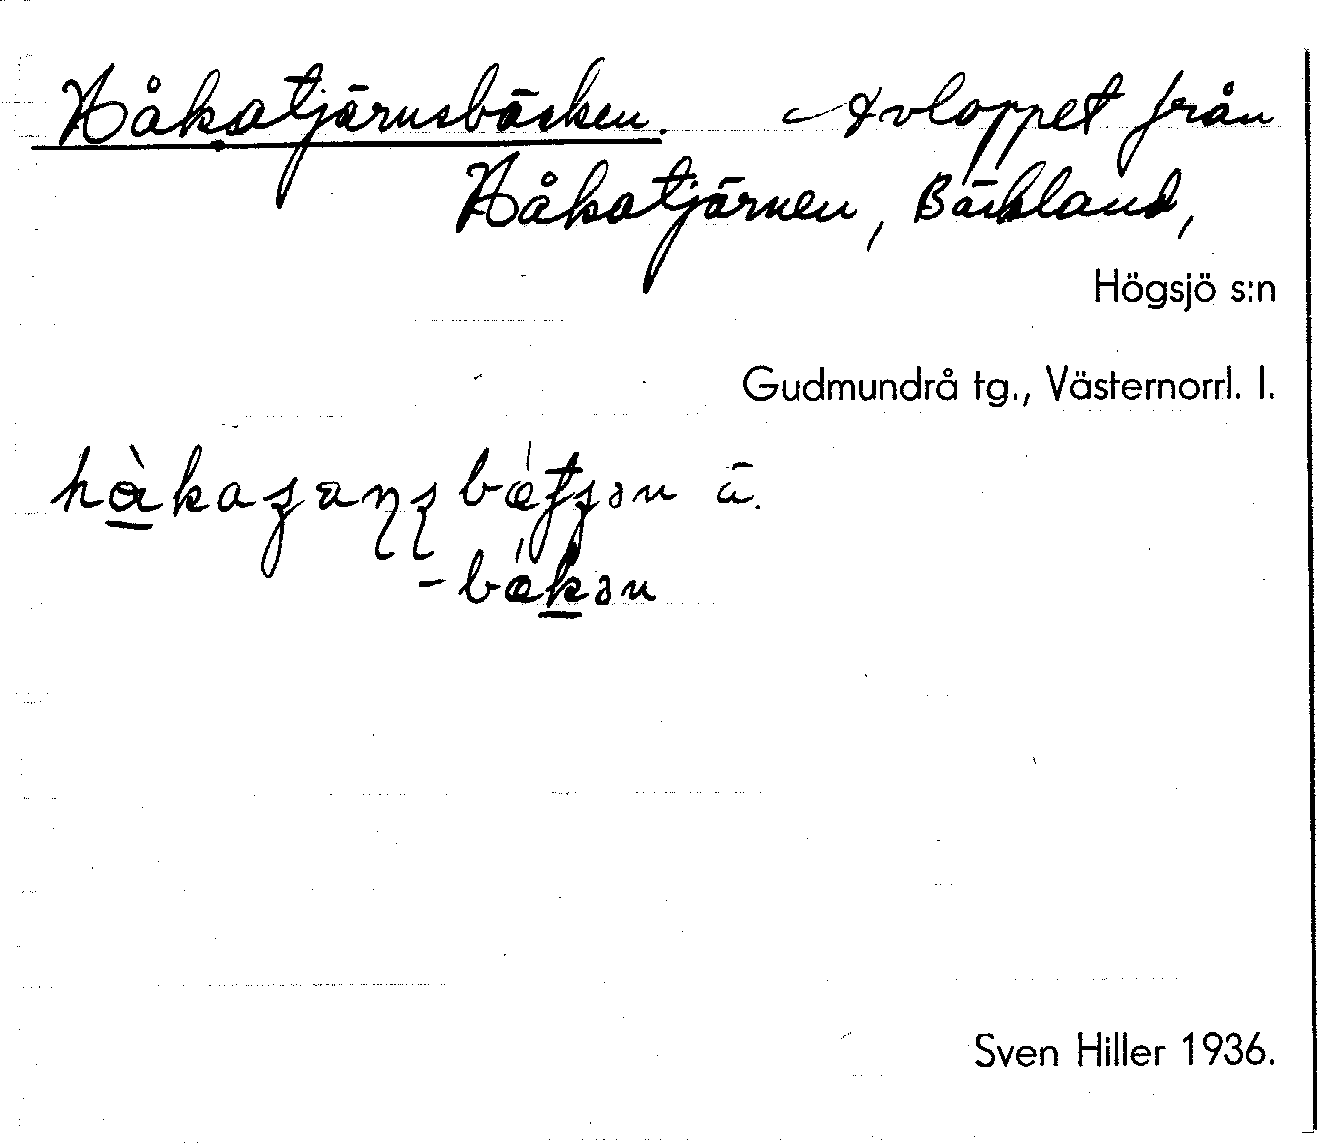 Håkatjärnsbäcken. Avloppet från
Håkatjärnen, Bäckland,
Högsjö s:n
Gudmundrå tg., Västernorrl. l.
ä.
Sven Hiller 1936.